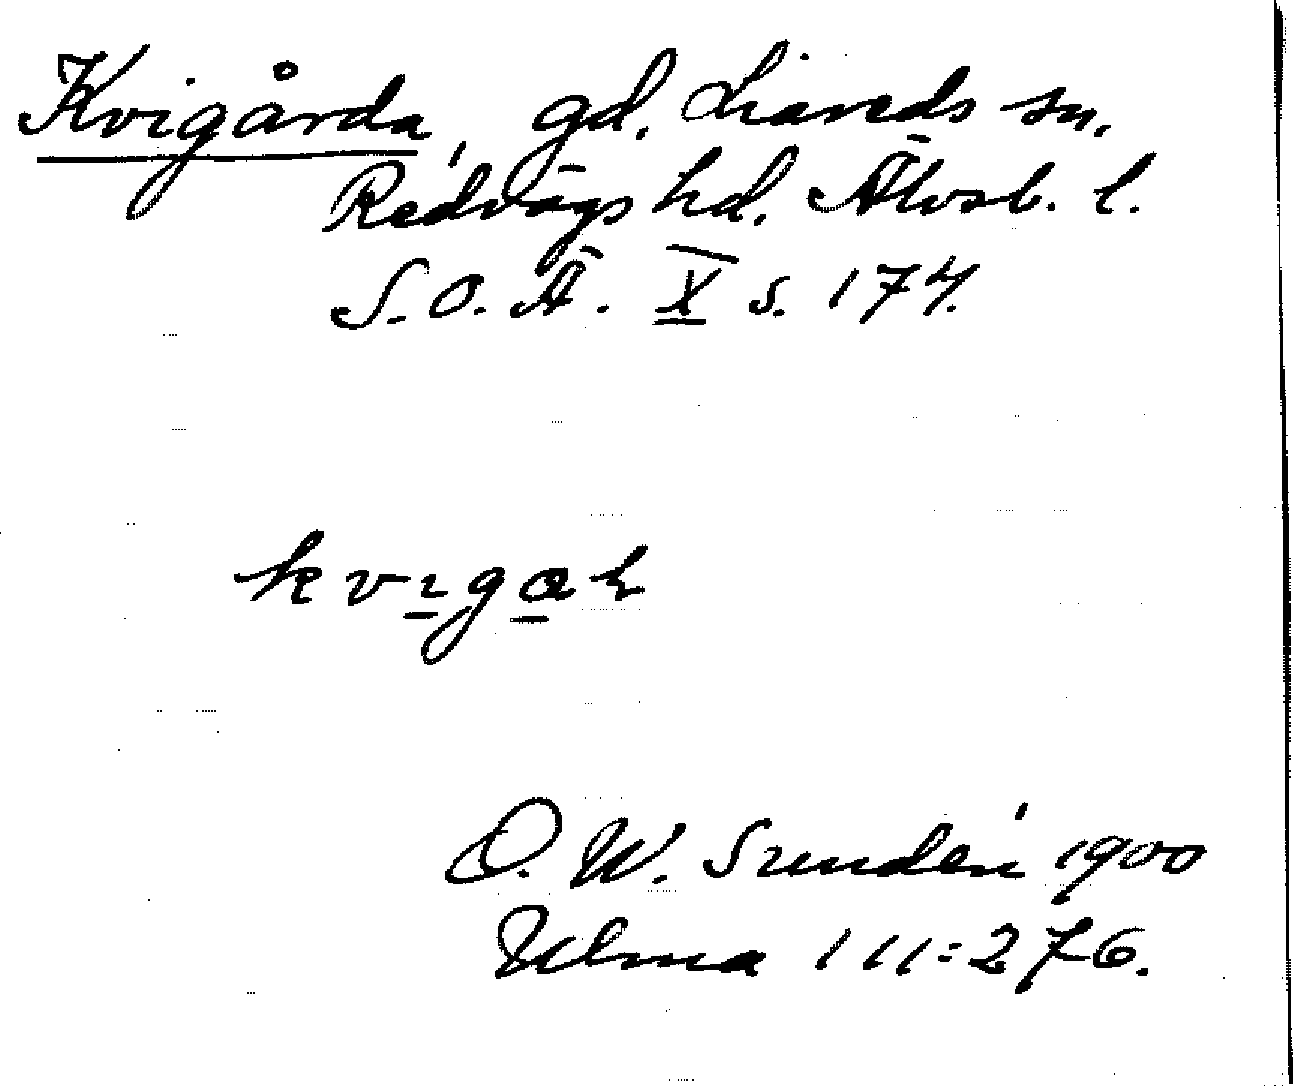 Kvigårda, gd. Liareds sn.
Redvägs hd. Älvsb. l.
S. O. Ä. X s. 174.
kvıgah
O. W. Sundén 1900
Ulma 111:276.